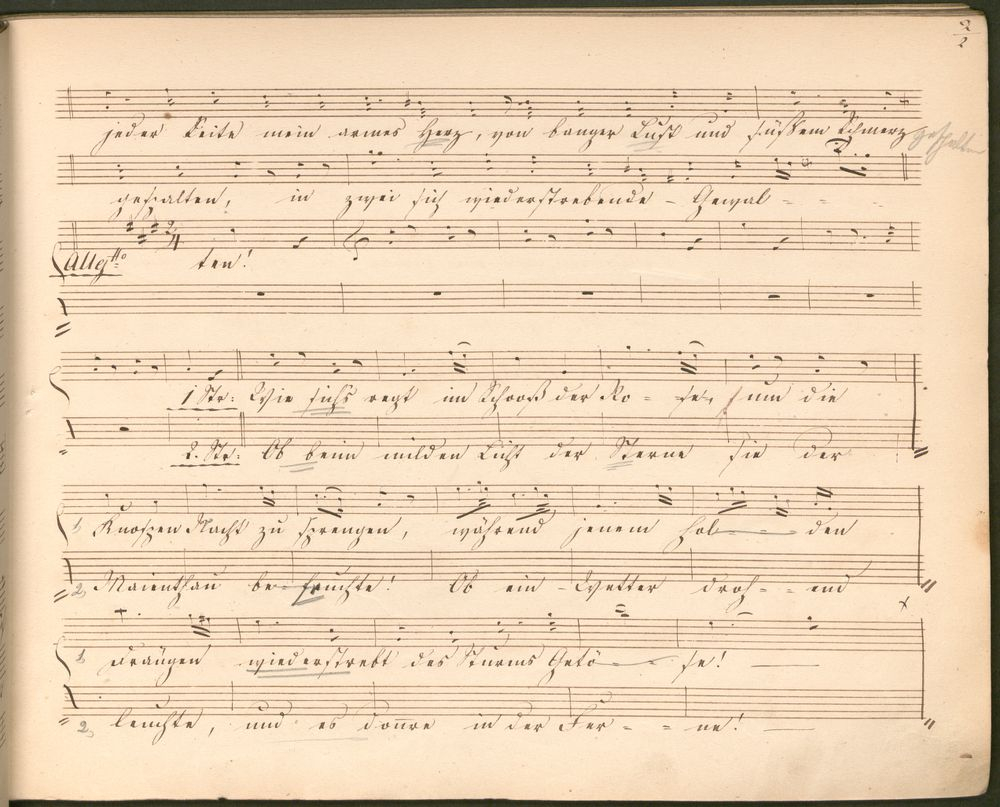 2
2
jeder Seite mein armes Herz, von banger Lust und süßem Schmerz gespalten
gespalten, in zwei sich wiederstrebende - Gewal - - -
2/4
Alleg tto
ten!
1 Str: Wie sichs regt im Schooß der Ro - se, um die
2. Str: Ob beim milden Licht der Sterne sie der
1 Knospen Nacht zu sprengen, während jenem hol - - - den
2, Maienthau be - fruchte! Ob ein - Wetter droh - - end
1 Drängen wiederstrebt des Sturms Getö - - se!
2, leuchte, und es don̄re in der Fer - - ne!